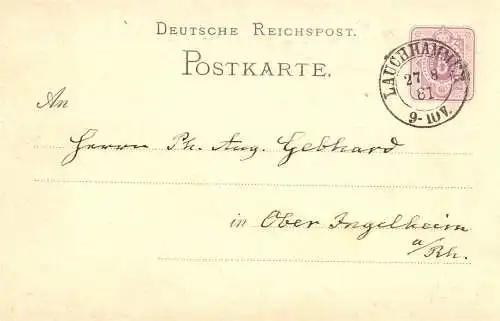 DEUTSCHE REICHSPOST.
POSTKARTE.
LAUCHHAMMER
27 8
81
9-10V.
An
Herrn Ph. Aug. Gebhard
in Ober Ingelheim
a/Rh.